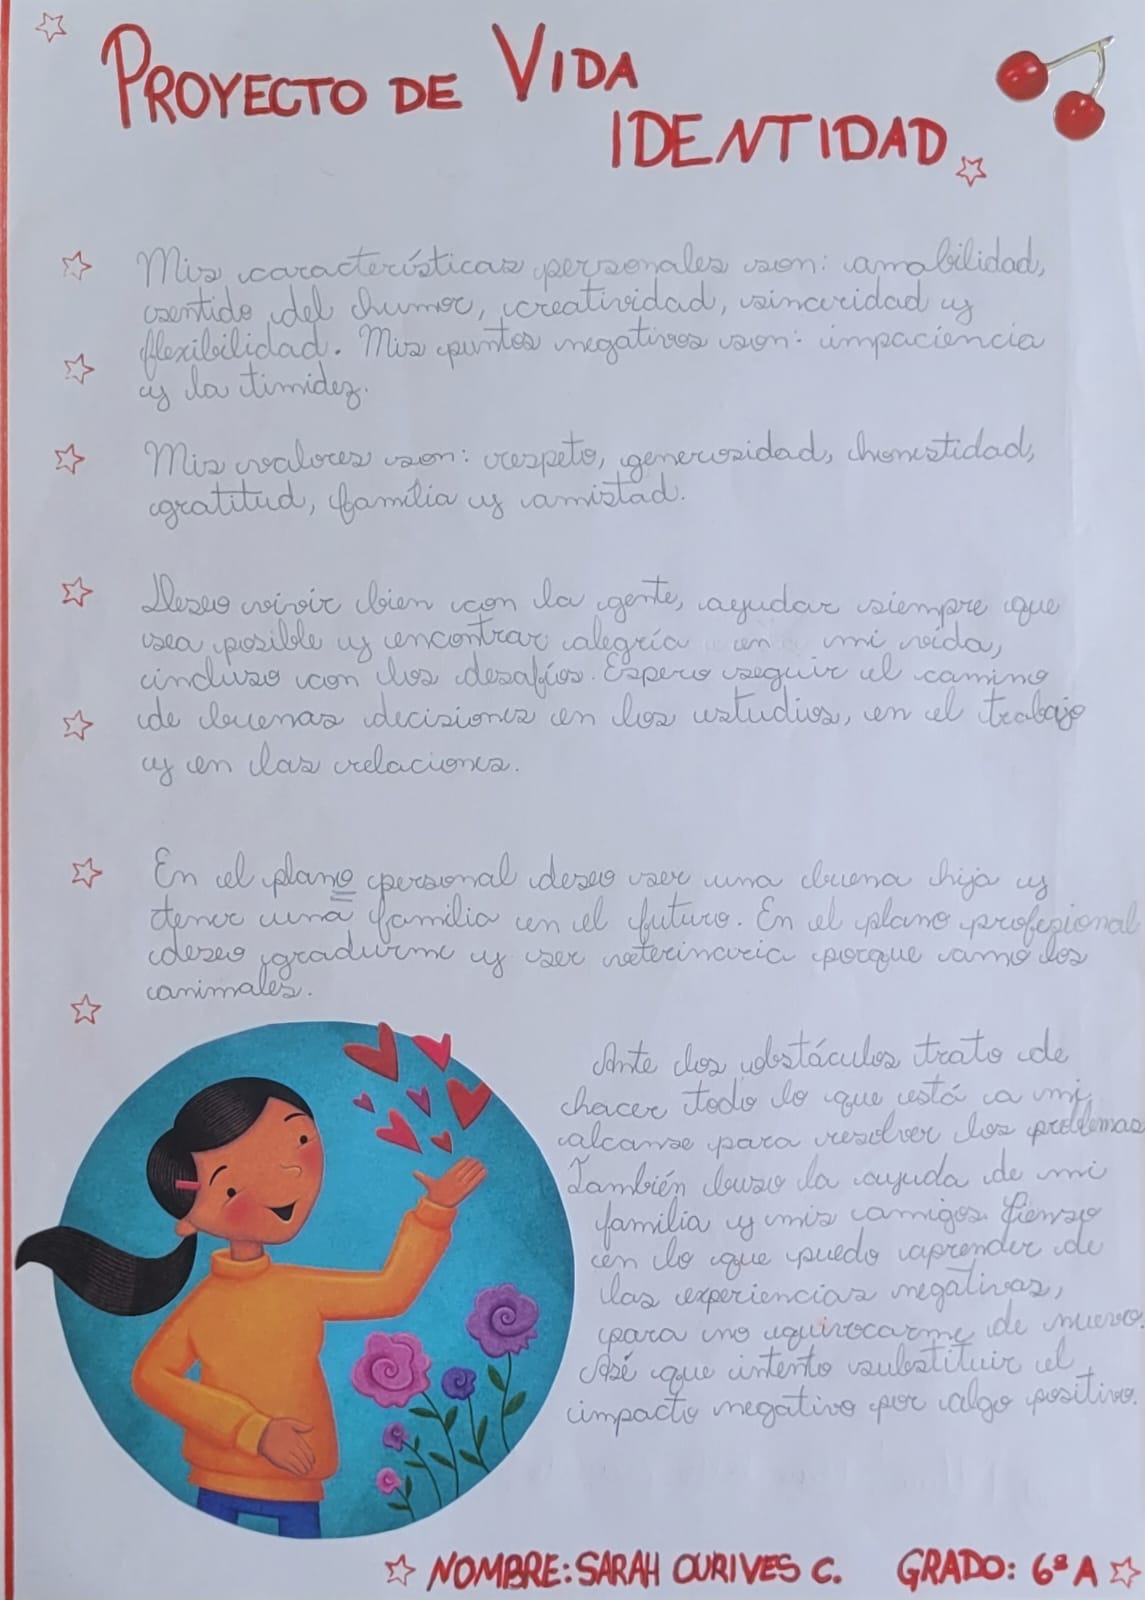 PROYECTO DE VIDA
IDENTIDAD
Mis características personales son: amabilidad,
sentido del humor, creatividad, sinceridad y
flexibilidad. Mis puntos negativos son: impaciencia
y la timidez.
Mis valores son: respeto, generosidad, honestidad,
gratitud, família y amistad.
Deseo vivir bien con la gente, ayudar siempre que
sea posible y encontrar alegría en mi vida,
incluso con los desafíos. Espero seguir el camino
de buenas decisiones en los estudios, en el trabajo
y en las relaciones.
En el plano personal deseo ser una buena hija y
tener una familia en el futuro. En el plano profesional
deseo gradurme y ser veterinaria porque amo los
animales.
Ante los obstáculos trato de
hacer todo lo que está a mi
alcanse para resolver los problemas.
También buso la ayuda de mi
familia y mis amigos. Pienso
en lo que puedo aprender de
las experiencias negativas,
para no equivocarme de nuevo.
Asé que intento substituir el
impacto negativo por algo positivo.
NOMBRE: SARAH OURIVES C. GRADO: 6ª A